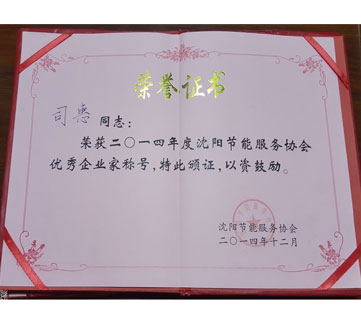 荣誉证书
司惠 同志：
荣获二〇一四年度沈阳节能服务协会
优秀企业家称号，特此颁证，以资鼓励。
沈阳节能服务协会
二〇一四年十二月